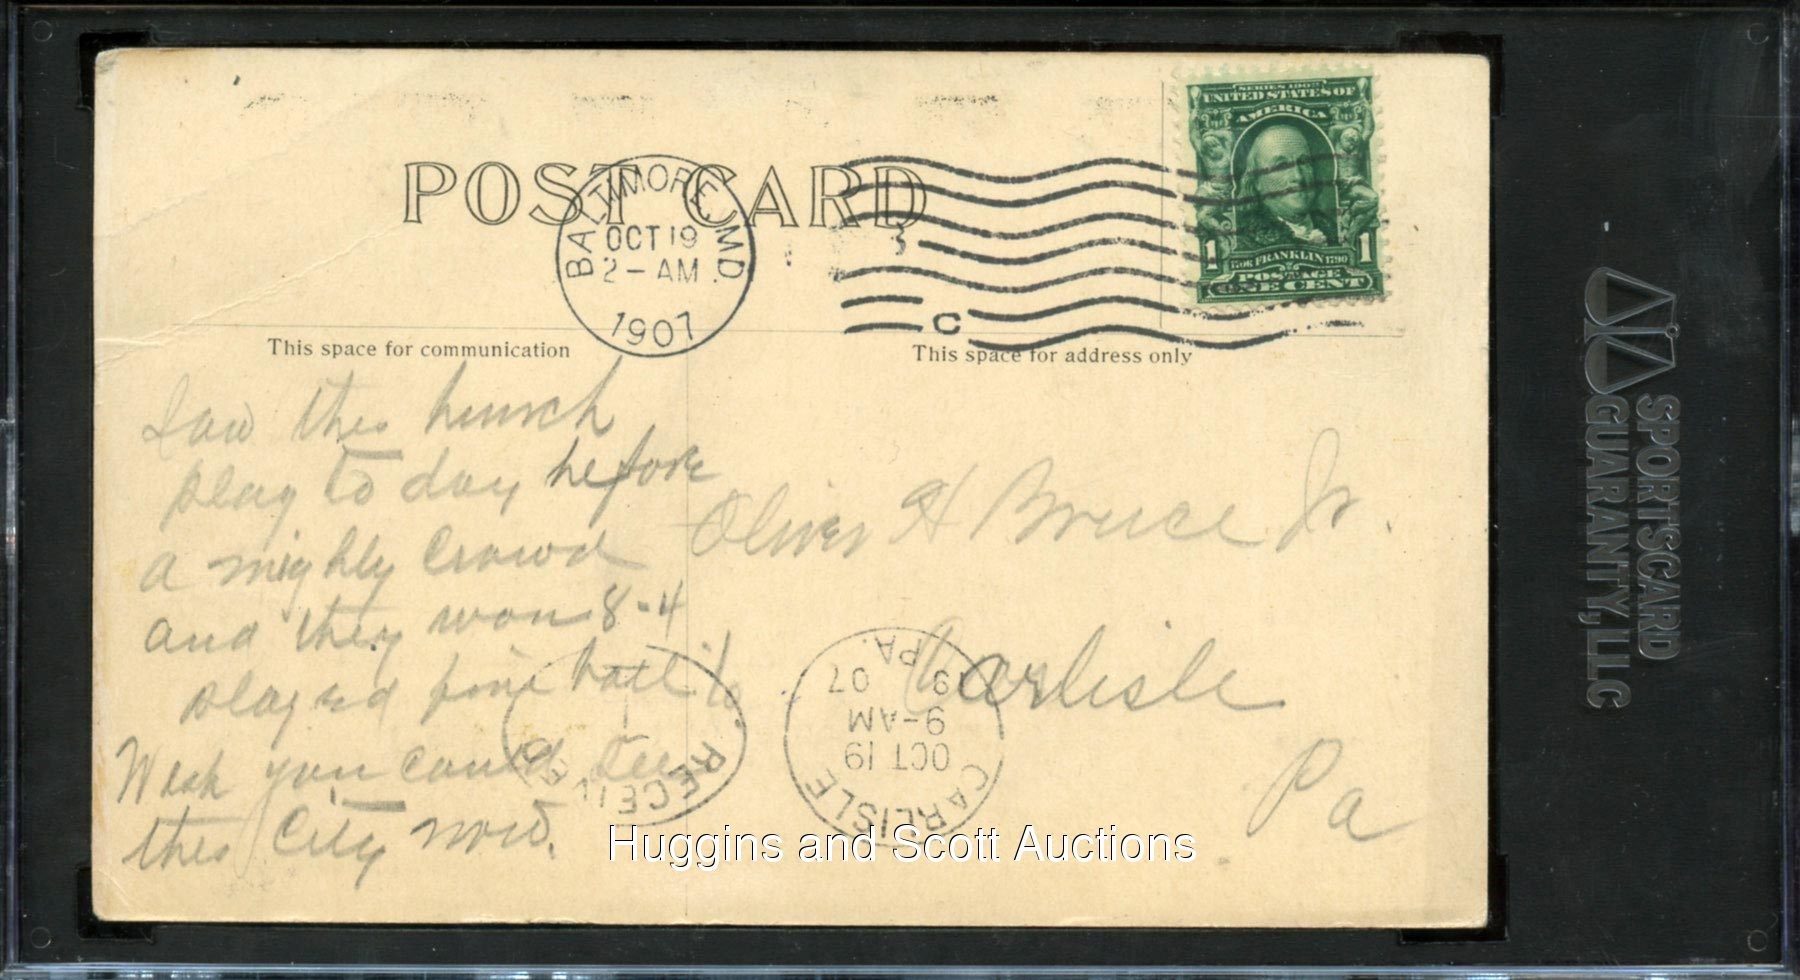 POST CARD
BALTIMORE, MD.
OCT 19
2-AM
1907
C
SERIES 1902
UNITED STATES OF
AMERICA
1 1
1706 FRANKLIN 1790
POSTAGE
ONE CENT
This space for communication
This space for address only
Saw this bunch
play to day before
a mighty Crowd
and they won 8-4
played fine ball
Wish you could see
this City now.
Oliver H Bruce Jr.
Carlisle
Pa
CARLISLE PA.
OCT 19
9-AM
07
RECEIVED
SPORTSCARD
GUARANTY, LLC
Huggins and Scott Auctions